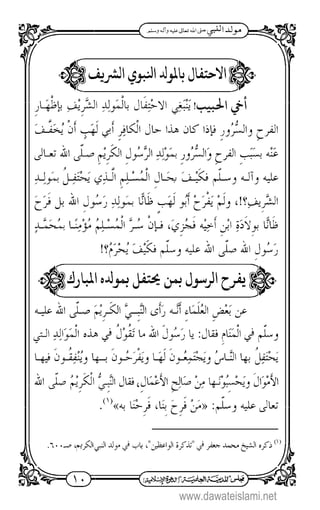 مولد النبي صلى الله تعالى عليه وآله وسلم
الاحتفال بالمولد النبوي الشريف
أَخِي الحبيب! يَنْبَغِي الاِحْتِفَال بالْمَوْلِدِ الشَّرِيْفِ بإظْهَارِ
الفرحِ والسُّرُورِ فإذا كان هذا حال الْكَافِرِ أَبِي لَهَبٍ أَنْ يُخَفَّـفَ
عَنْهُ بسَبَبِ الفرحِ والسُّرُورِ بمَوْلِدِ الرَّسُولِ الْكَرِيْمِ صلّى الله تعـالى
عليه وآلـه وسـلّم فَكَيْـفَ بحَـالِ الْمُسْـلِمِ الَّـذِي يَحْتَفِـلُ بمَوْلِـدِهِ
الشَّرِيفِ؟!، وَلَمْ يَفْرَحْ أَبُوْ لَهَبٍ ظَانًّا بمَوْلِدِ رَسُوْلِ الله بل فَرَحَ
ظَانًّا بوِلَادَةِ ابْنِ أَخِيْهِ فَجُزِيَ، فـإنْ سُـرَّ الْمُسْـلِمُ مُؤْمِنًـا بمُحَمَّـدٍ
رَسُوْلِ الله صلّى الله عليه وسلّم فَكَيْفَ يُحْرَمُ؟!
يفرح الرسول بمن يحتفل بمولده المبارك
عن بَعْضِ الْعُلَمَاءِ أَنَّـه رَأَى النَّبِـيَّ الكَـرِيْمَ صـلّى الله عليـه
وسلّم في الْمَنَامِ فقال: يا رَسُوْلَ الله ما تَقُوْلُ في هذه الْمَوَالِدِ الـتي
يَحْتَفِلُ بها النَّـاسُ ويَجْتَمِعُـونَ لَهَـا ويَفْرَحُـونَ بهـا ويُنْفِقُـونَ فيهـا
الأَمْوَالَ ويَحْسَبُوْنَهَـا مِنْ صَالِحِ الأَعْمَالِ، فقال النَّبِيُّ الْكَرِيْمُ صلّى الله
تعالى عليه وسلّم: «مَنْ فَرِحَ بنَا، فَرِحْنَا به».(١)
(١) ذكره الشيخ محمد جعفر في "تذكرة الواعظين"، باب في مولد النبي الكريم، صـ٦٠٠.
مجلس المدينة العلمية (الدعوة الإسلامية)
١٠
www.dawateislami.net